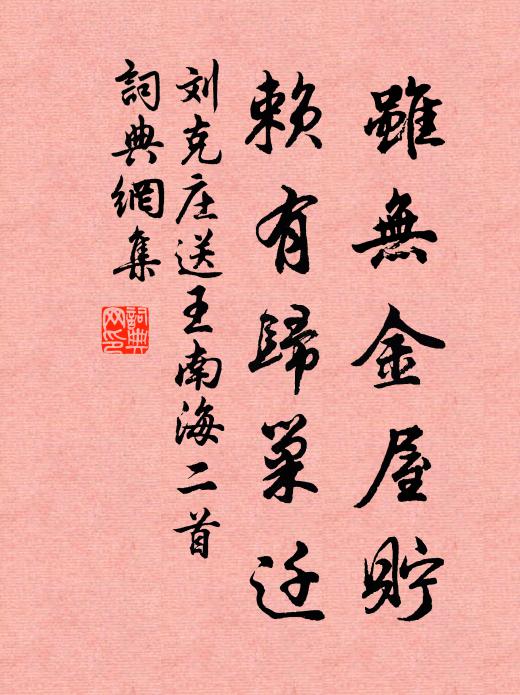 雖無金屋貯
賴有歸巢迁
刘克庄送王南海二首
詞典網集
詞典
网印